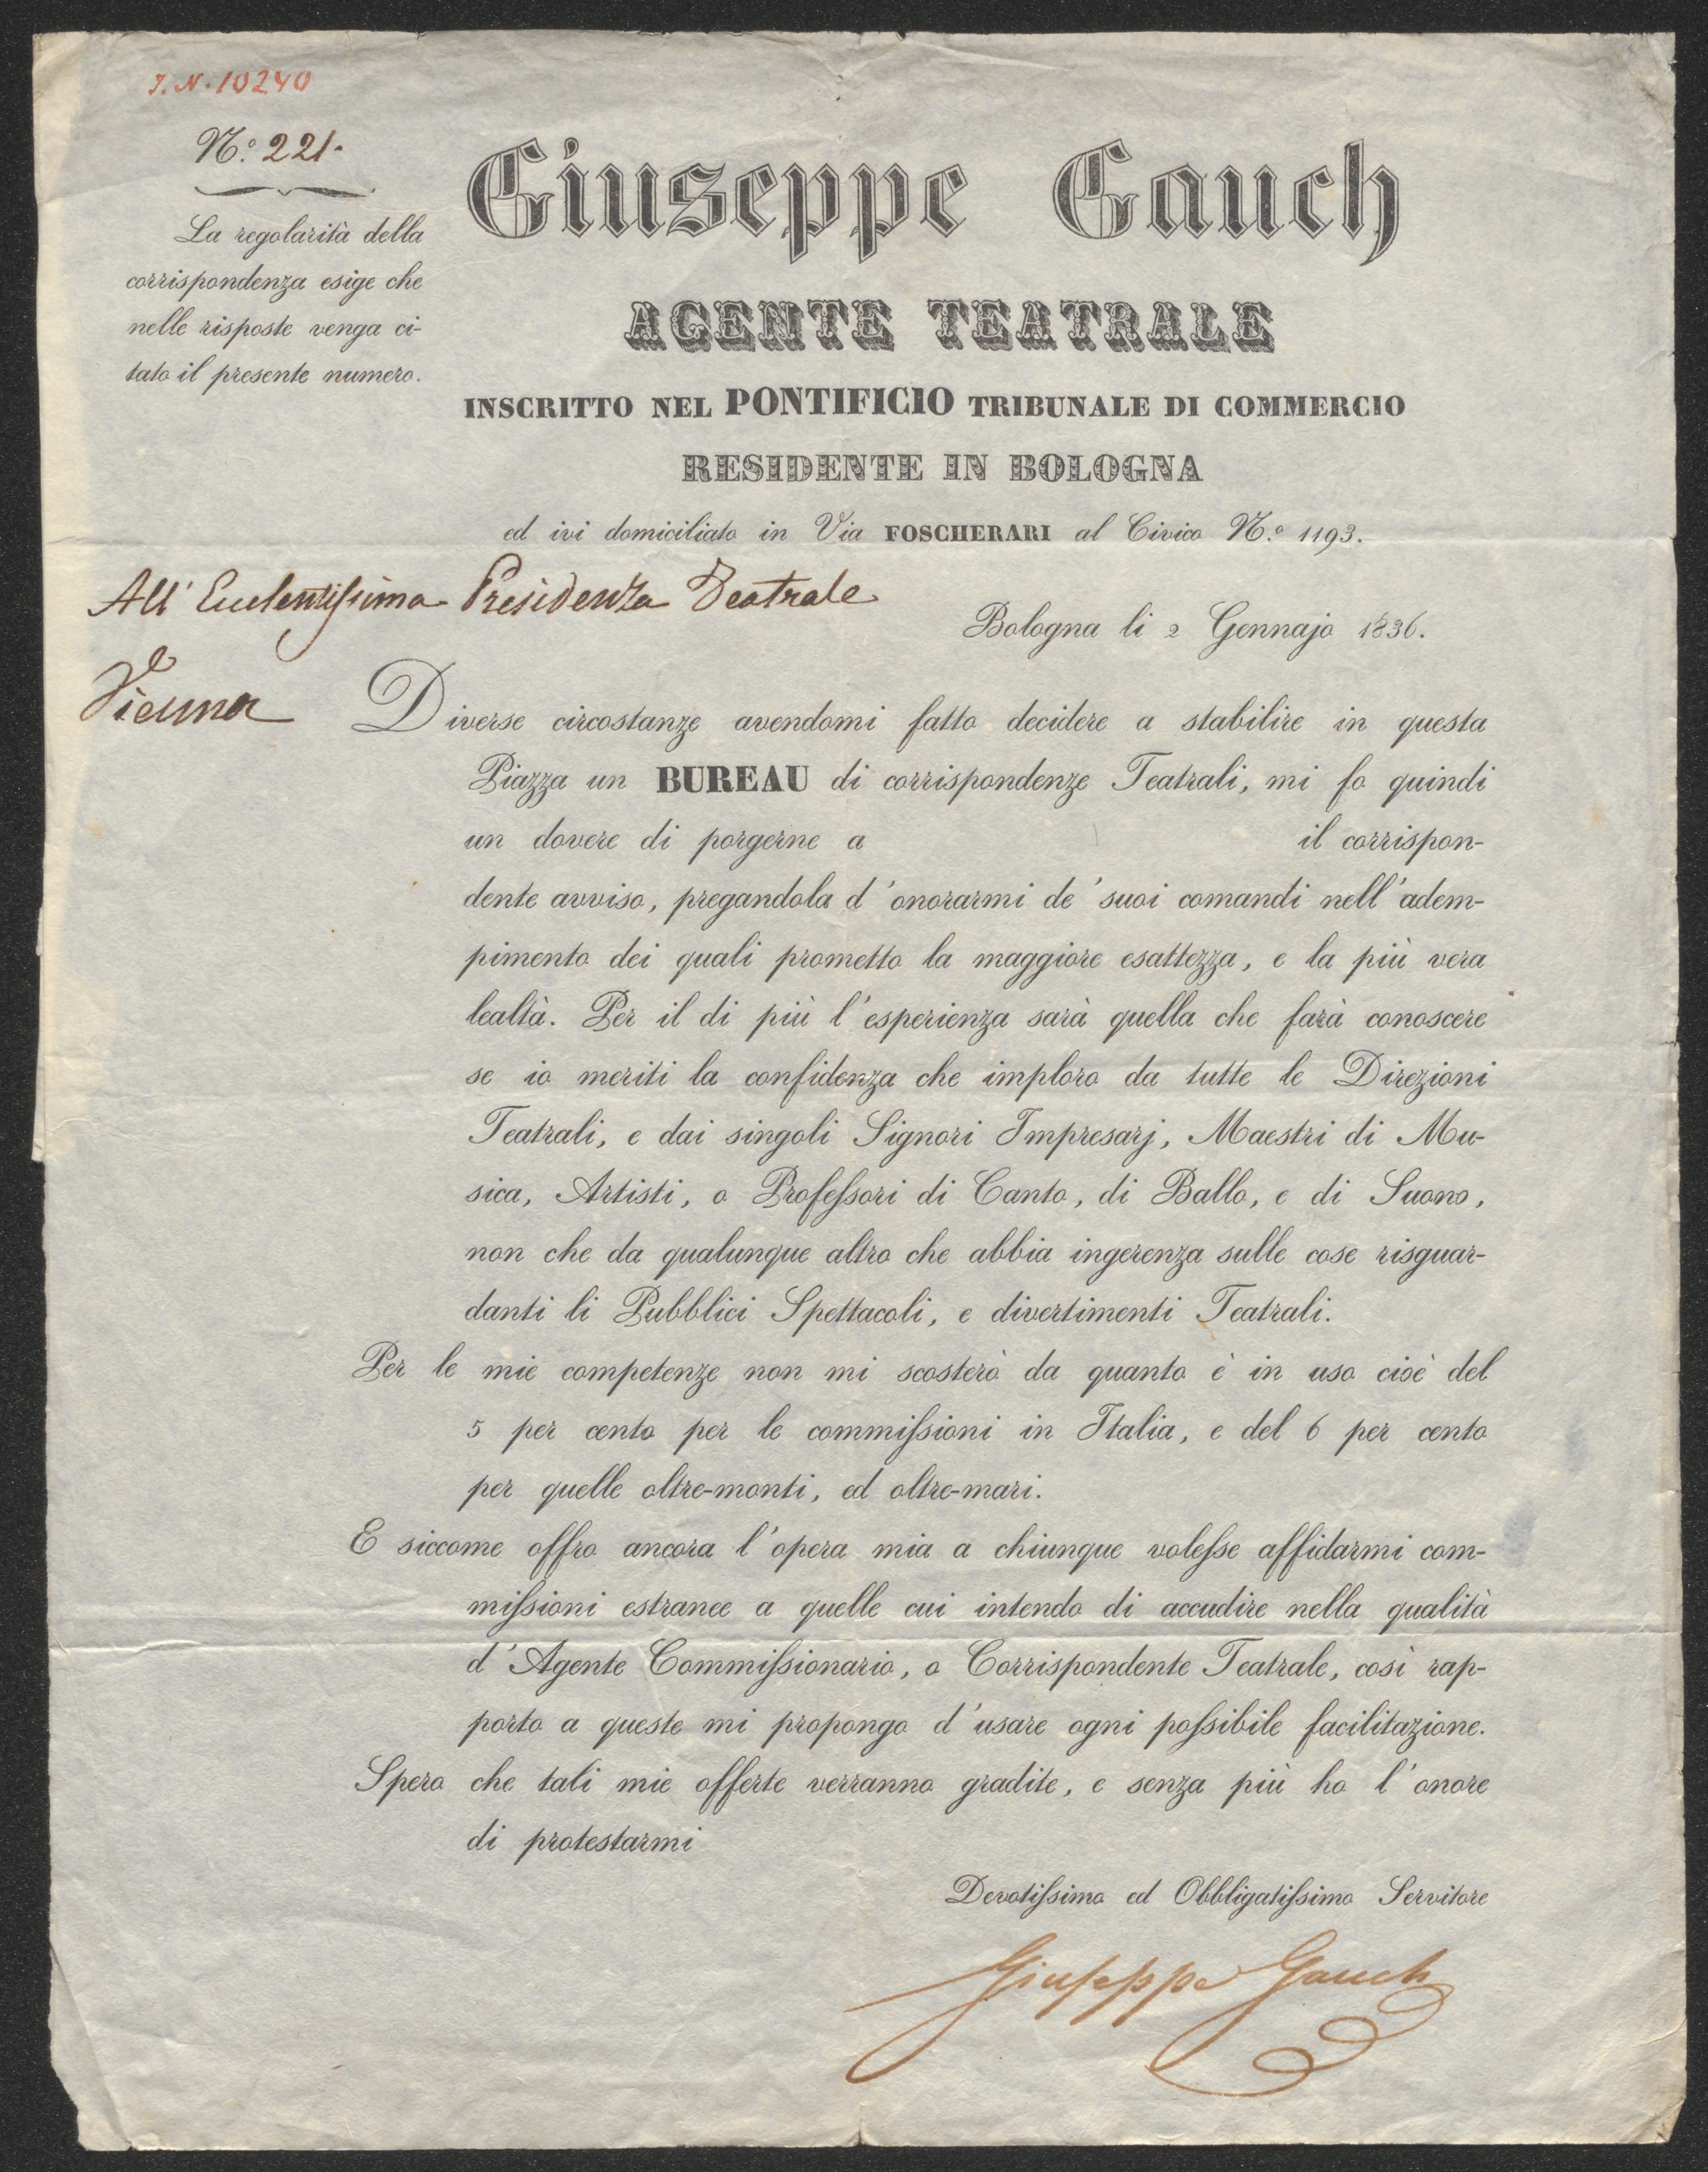 I.N. 10240
N.º 221.
La regolarità della
corrispondenza esige che
nelle risposte venga ci-
tato il presente numero.
Giuseppe Gauch
AGENTE TEATRALE
INSCRITTO NEL PONTIFICIO TRIBUNALE DI COMMERCIO
RESIDENTE IN BOLOGNA
ed ivi domiciliato in Via FOSCHERARI al Civico N.º 1193.
All' Eccelentissima Presidenza Teatrale
Vienna
Bologna li 2 Gennajo 1836.
Diverse circostanze avendomi fatto decidere a stabilire in questa
Piazza un BUREAU di corrispondenze Teatrali, mi fo quindi
un dovere di porgerne a il corrispon-
dente avviso, pregandola d'onorarmi de' suoi comandi nell'adem-
pimento dei quali prometto la maggiore esattezza, e la più vera
lealtà. Per il di più l'esperienza sarà quella che farà conoscere
se io meriti la confidenza che imploro da tutte le Direzioni
Teatrali, e dai singoli Signori Impresarj, Maestri di Mu-
sica, Artisti, o Profeſsori di Canto, di Ballo, e di Suono,
non che da qualunque altro che abbia ingerenza sulle cose risguar-
danti li Pubblici Spettacoli, e divertimenti Teatrali.
Per le mie competenze non mi scosterò da quanto è in uso cioè del
5 per cento per le commiſsioni in Italia, e del 6 per cento
per quelle oltre-monti, ed oltre-mari.
E siccome offro ancora l'opera mia a chiunque voleſse affidarmi com-
miſsioni estranee a quelle cui intendo di accudire nella qualità
d'Agente Commiſsionario, o Corrispondente Teatrale, così rap-
porto a queste mi propongo d'usare ogni poſsibile facilitazione.
Spero che tali mie offerte verranno gradite, e senza più ho l'onore
di protestarmi
Devotiſsimo ed Obbligatiſsimo Servitore
Giuſeppe Gauch